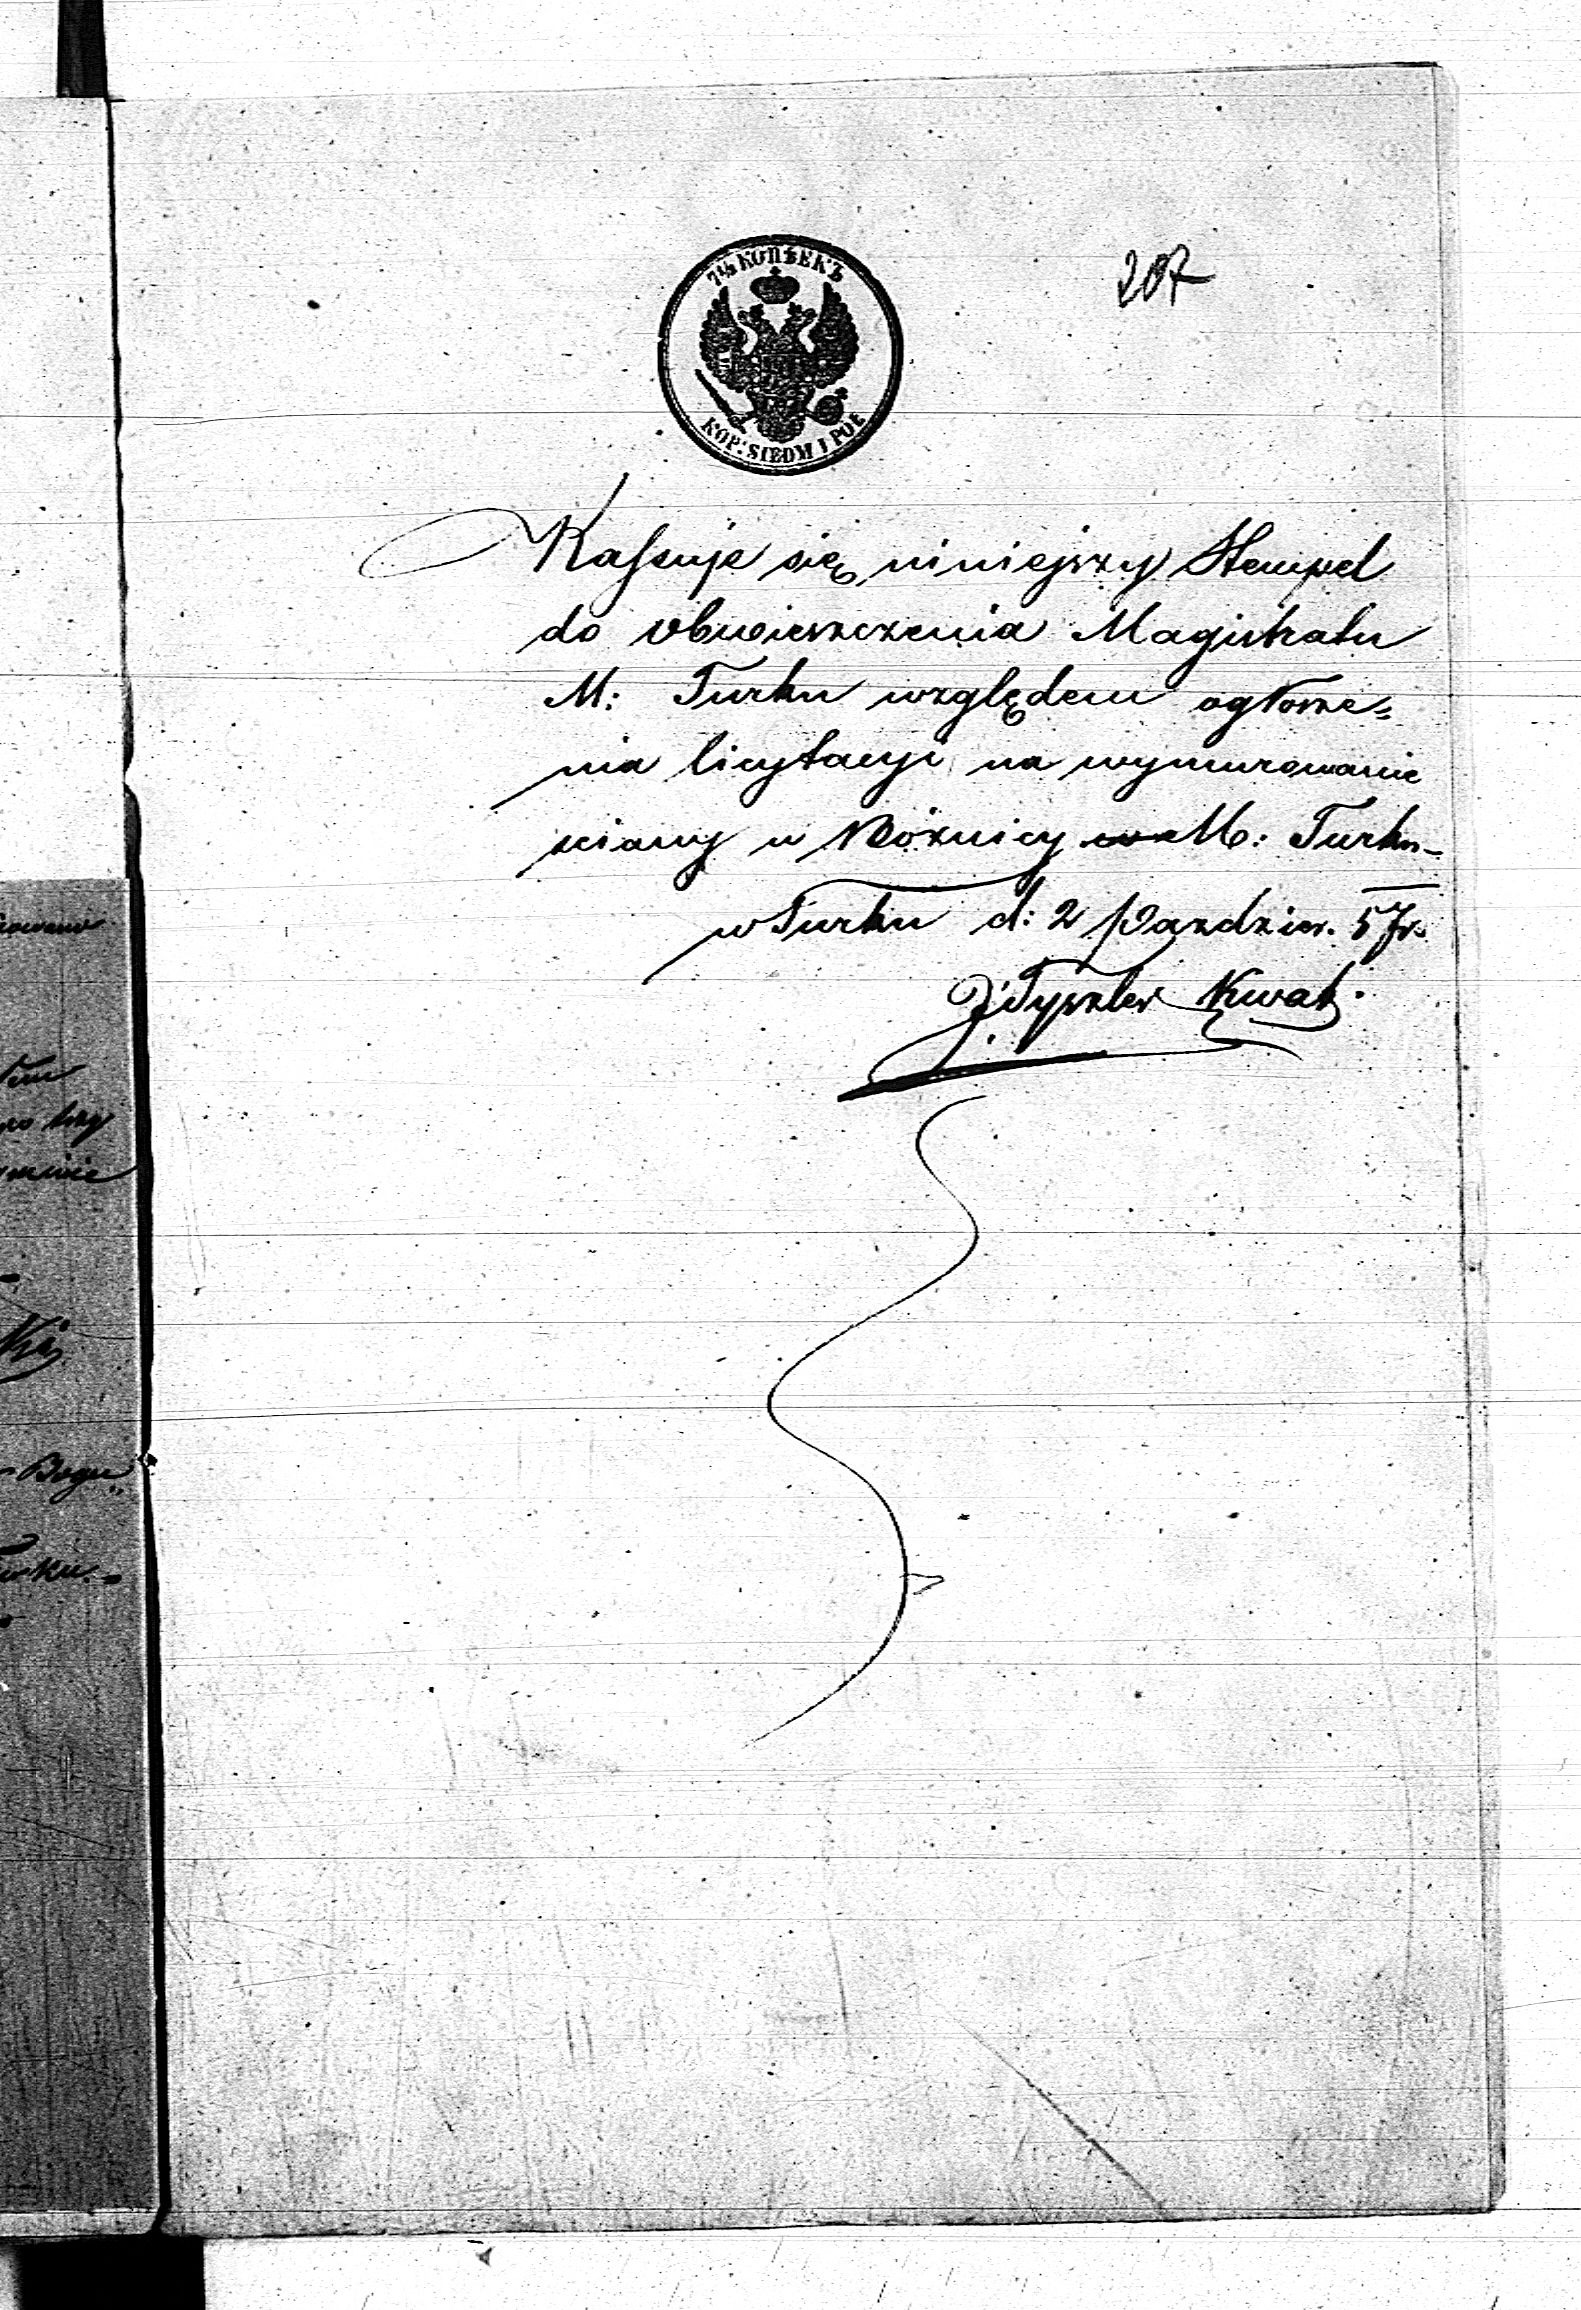 207
7½ КОПѢЕКЪ
KOP: SIEDM I PÓŁ
Kassuje się niniejszy Stempel
do obwieszczenia Magistratu
M: Turku względem ogłosze=
nia licytacyi na wymurowanie
sciany w Bóżnicy w M: Turku
w Turku d: 2 Pazdzier. 57 r.
Kwat
Bogu„